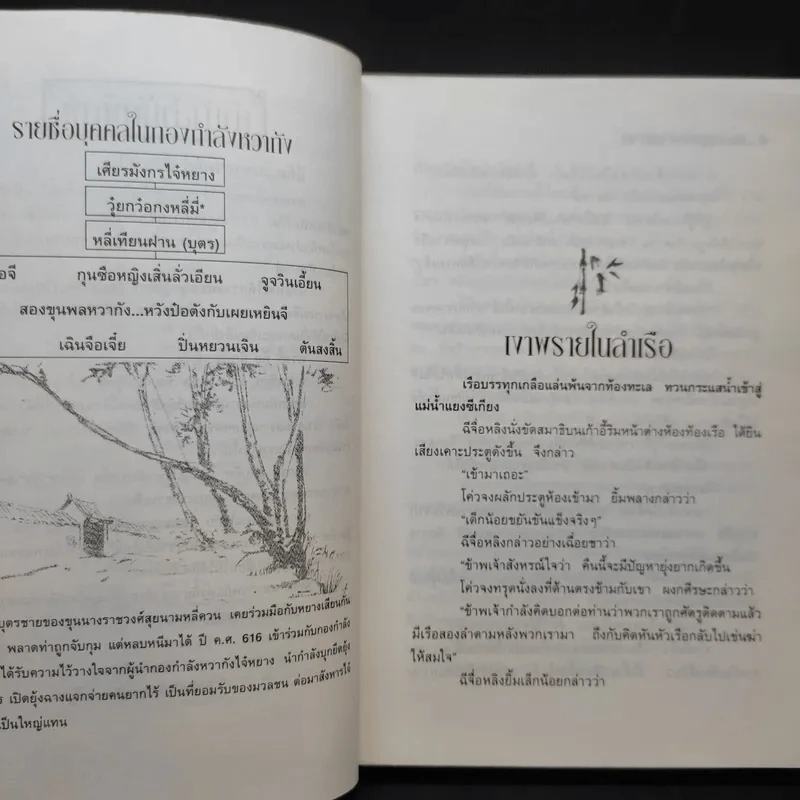 รายชื่อบุคคลในกองกำลังหวากัง
เศียรมังกรไจ๋หยาง
วุ่ยกว๋อกงหลี่มี่*
หลี่เทียนฝาน (บุตร)
อจี กุนซือหญิงเสิ่นลั่วเอียน จูจวินเอี้ยน
สองขุนพลหวากัง...หวังป๋อตังกับเผยเหยินจี
เฉินจือเจี๋ย ปิ่นหยวนเจิน ตันสงสิ้น
บุตรชายของขุนนางราชวงศ์สุยนามหลี่ควน เคยร่วมมือกับหยางเสียนกั่น
พลาดท่าถูกจับกุม แต่หลบหนีมาได้ ปี ค.ศ. 616 เข้าร่วมกับกองกำลัง
ได้รับความไว้วางใจจากผู้นำกองกำลังหวากังไจ๋หยาง นำกำลังบุกยึดยุ้ง
ร เปิดยุ้งฉางแจกจ่ายคนยากไร้ เป็นที่ยอมรับของมวลชน ต่อมาสังหารไจ๋
เป็นใหญ่แทน
เงาพรายในลำเรือ
เรือบรรทุกเกลือแล่นพ้นจากท้องทะเล ทวนกระแสน้ำเข้าสู่
แม่น้ำแยงซีเกียง
ฉีจื่อหลิงนั่งขัดสมาธิบนเก้าอี้ริมหน้าต่างห้องท้องเรือ ได้ยิน
เสียงเคาะประตูดังขึ้น จึงกล่าว
“เข้ามาเถอะ”
โค่วจงผลักประตูห้องเข้ามา ยิ้มพลางกล่าวว่า
“เด็กน้อยขยันขันแข็งจริงๆ”
ฉีจื่อหลิงกล่าวอย่างเฉื่อยชาว่า
“ข้าพเจ้าสังหรณ์ใจว่า คืนนี้จะมีปัญหายุ่งยากเกิดขึ้น
โค่วจงทรุดนั่งลงที่ด้านตรงข้ามกับเขา ผงกศีรษะกล่าวว่า
“ข้าพเจ้ากำลังคิดบอกต่อท่านว่าพวกเราถูกศัตรูติดตามแล้ว
มีเรือสองลำตามหลังพวกเรามา ถึงกับคิดหันหัวเรือกลับไปเข่นฆ่า
ให้สมใจ”
ฉีจื่อหลิงยิ้มเล็กน้อยกล่าวว่า